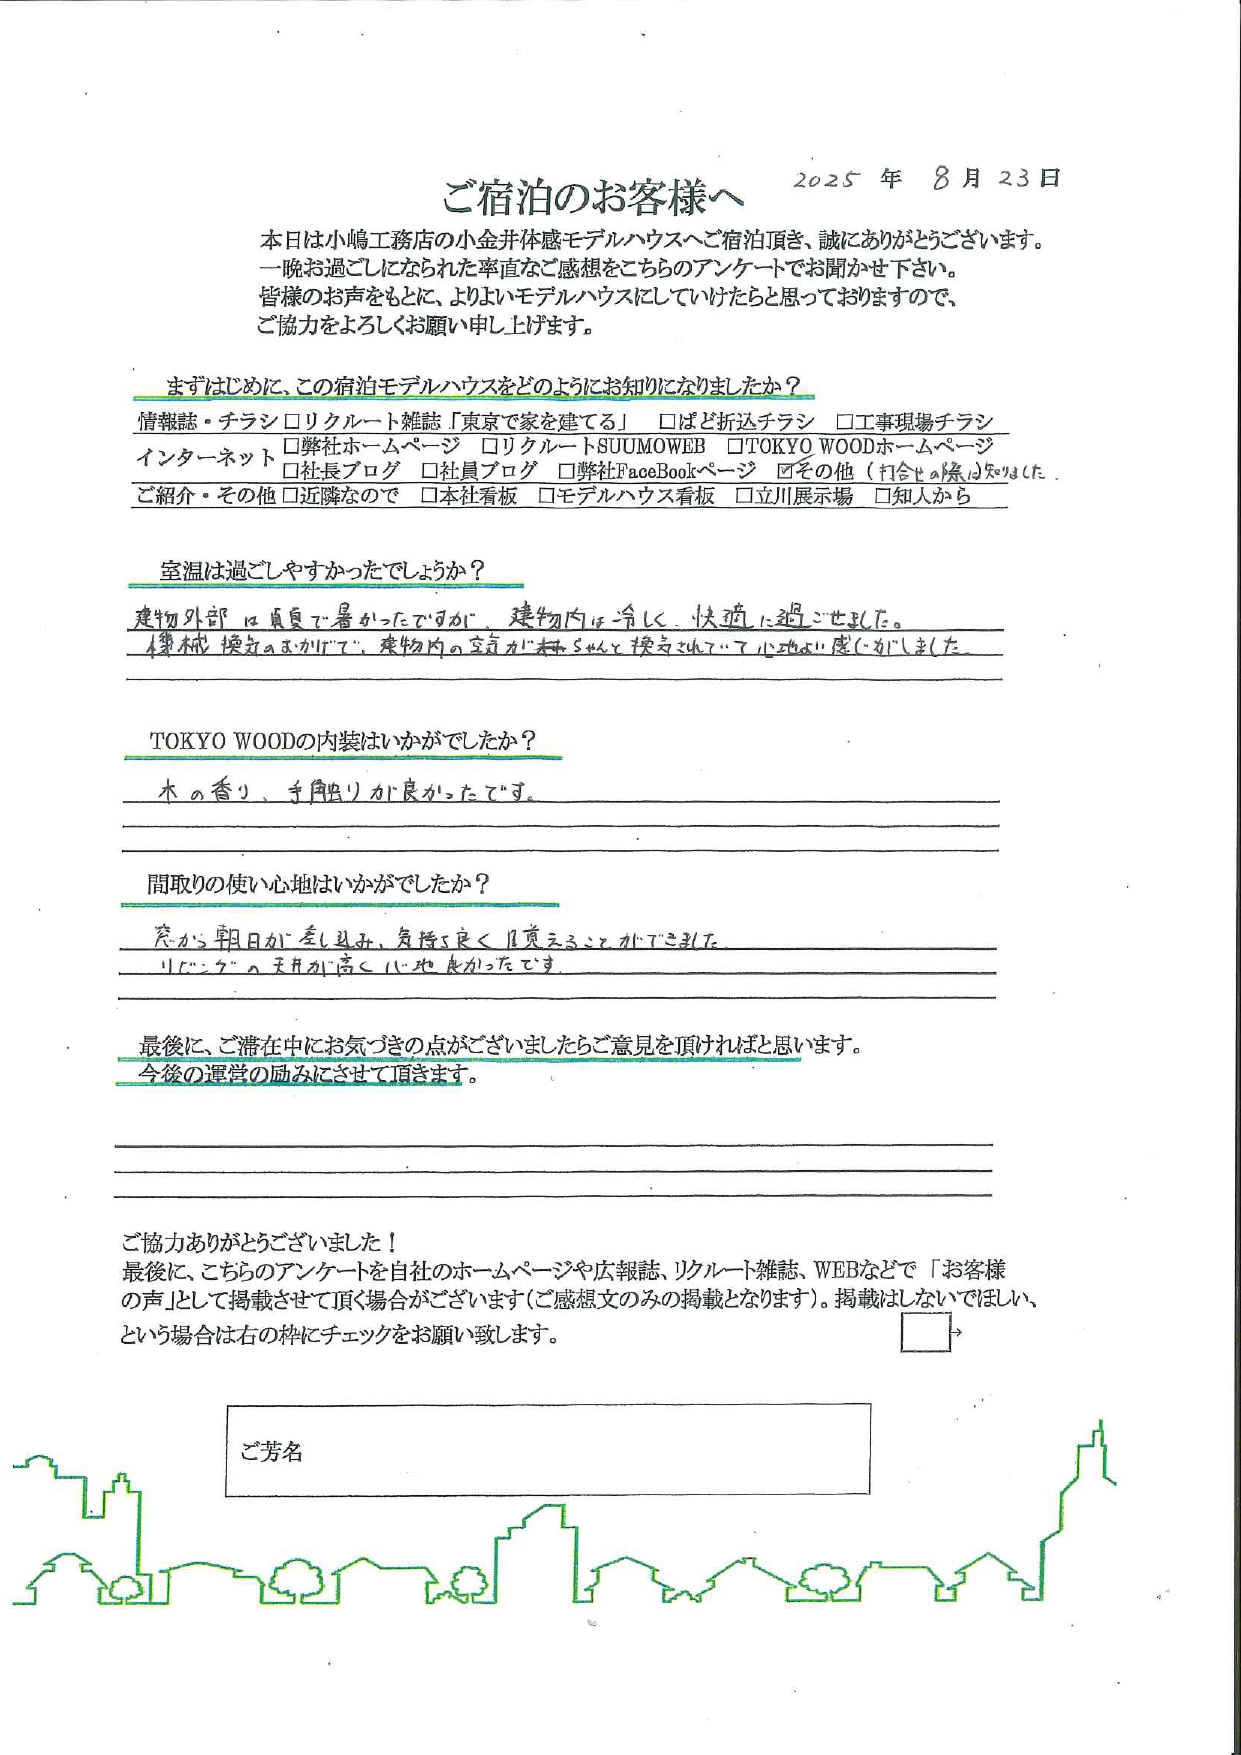 2025 年 8月 23日
ご宿泊のお客様へ
本日は小嶋工務店の小金井体感モデルハウスへご宿泊頂き、誠にありがとうございます。
一晩お過ごしになられた率直なご感想をこちらのアンケートでお聞かせ下さい。
皆様のお声をもとに、よりよいモデルハウスにしていけたらと思っておりますので、
ご協力をよろしくお願い申し上げます。
まずはじめに、この宿泊モデルハウスをどのようにお知りになりましたか？
情報誌・チラシ □リクルート雑誌「東京で家を建てる」 □ぱど折込チラシ □工事現場チラシ
インターネット □弊社ホームページ □リクルートSUUMOWEB □TOKYO WOODホームページ
□社長ブログ □社員ブログ □弊社FaceBookページ ☑その他（打合せの際に知りました.
ご紹介・その他 □近隣なので □本社看板 □モデルハウス看板 □立川展示場 □知人から
室温は過ごしやすかったでしょうか？
建物外部は真夏で暑かったですが、建物内は冷しく、快適に過ごせました。
機械換気のおかげで、建物内の空気がちゃんと換気されていて心地よい感じがしました
TOKYO WOODの内装はいかがでしたか？
木の香り、手触りが良かったです。
間取りの使い心地はいかがでしたか？
窓から朝日が差し込み、気持ち良く目覚えることができました
リビングの天井が高く心地良かったです
最後に、ご滞在中にお気づきの点がございましたらご意見を頂ければと思います。
今後の運営の励みにさせて頂きます。
ご協力ありがとうございました！
最後に、こちらのアンケートを自社のホームページや広報誌、リクルート雑誌、WEBなどで「お客様
の声」として掲載させて頂く場合がございます（ご感想文のみの掲載となります）。掲載はしないでほしい、
という場合は右の枠にチェックをお願い致します。 □→
ご芳名